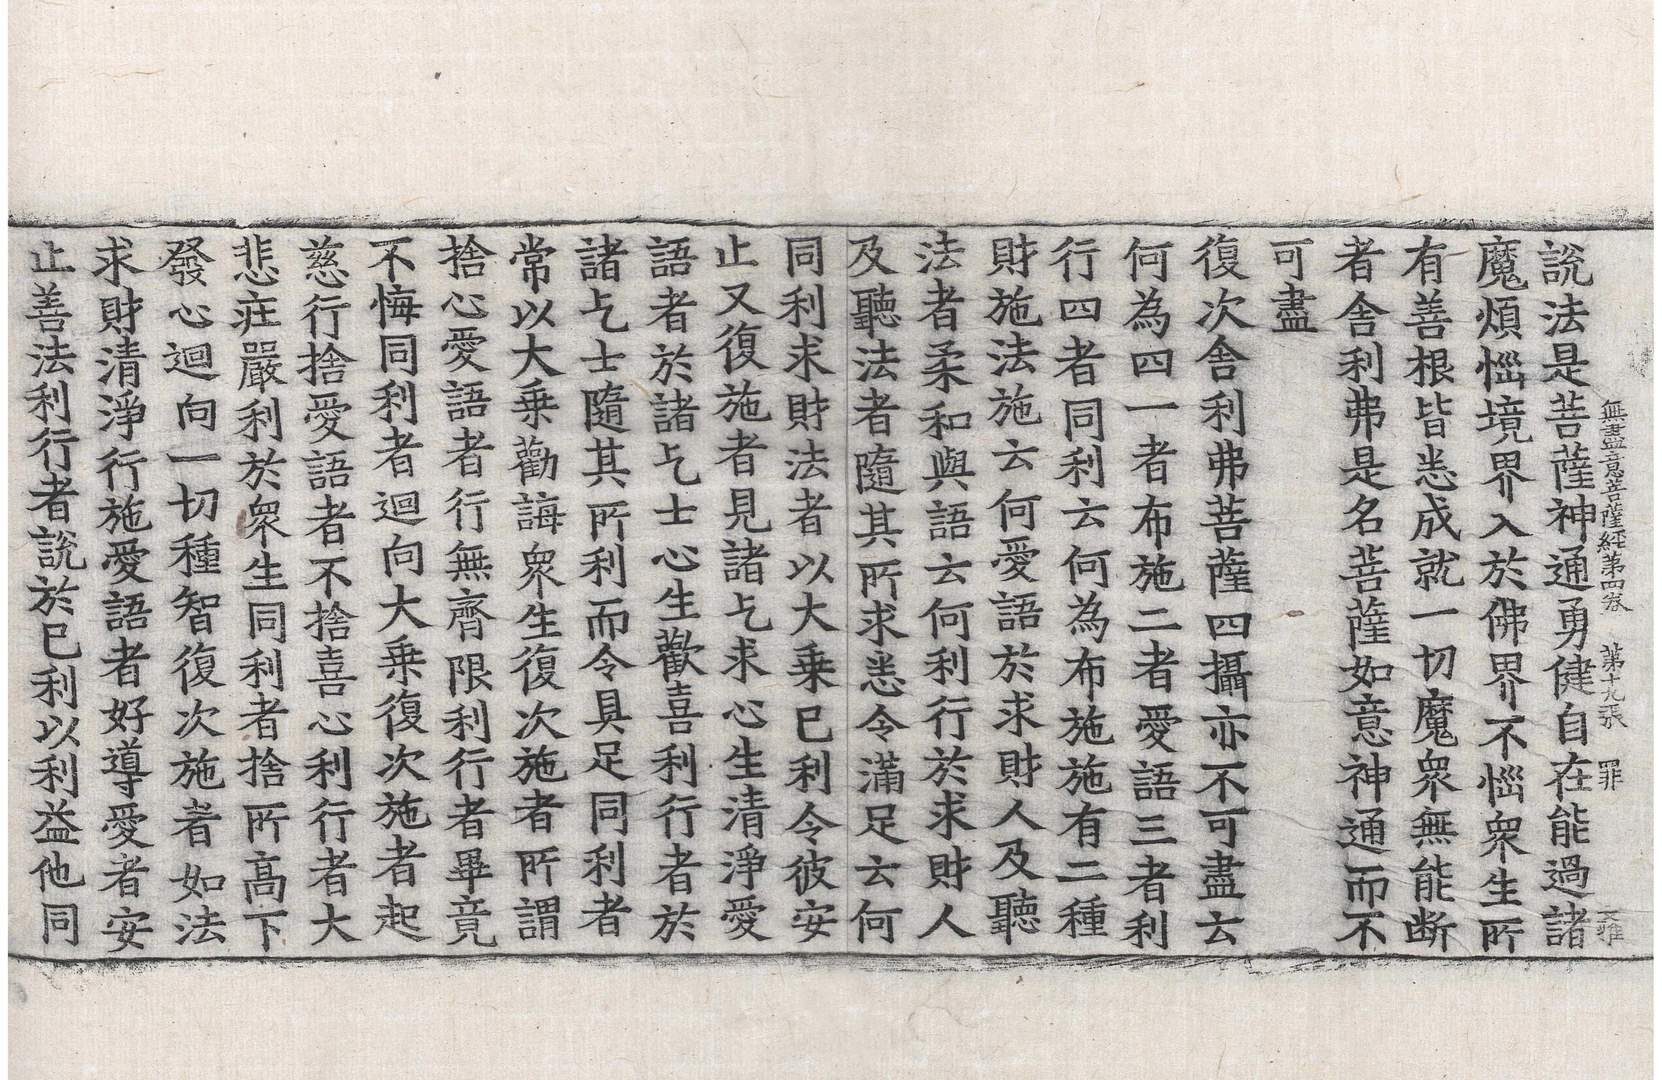 無盡意菩薩経第四卷 第十九張 罪
說法是菩薩神通勇健自在能過諸
魔煩惱境界入於佛界不惱衆生所
有善根皆悉成就一切魔衆無能断
者舍利弗是名菩薩如意神通而不
可盡
復次舍利弗菩薩四攝亦不可盡云
何為四一者布施二者愛語三者利
行四者同利云何為布施施有二種
財施法施云何愛語於求財人及聽
法者柔和與語云何利行於求財人
及聽法者隨其所求悉令滿足云何
同利求財法者以大乗已利令彼安
止又復施者見諸乞求心生清淨愛
語者於諸乞士心生歡喜利行者於
諸乞士隨其所利而令具足同利者
常以大乗勸誨衆生復次施者所謂
捨心愛語者行無齊限利行者畢竟
不悔同利者迴向大乗復次施者起
慈行捨愛語者不捨喜心利行者大
悲莊嚴利於衆生同利者捨所高下
發心迴向一切種智復次施者如法
求財清淨行施愛語者好導愛者安
止善法利行者說於已利以利益他同